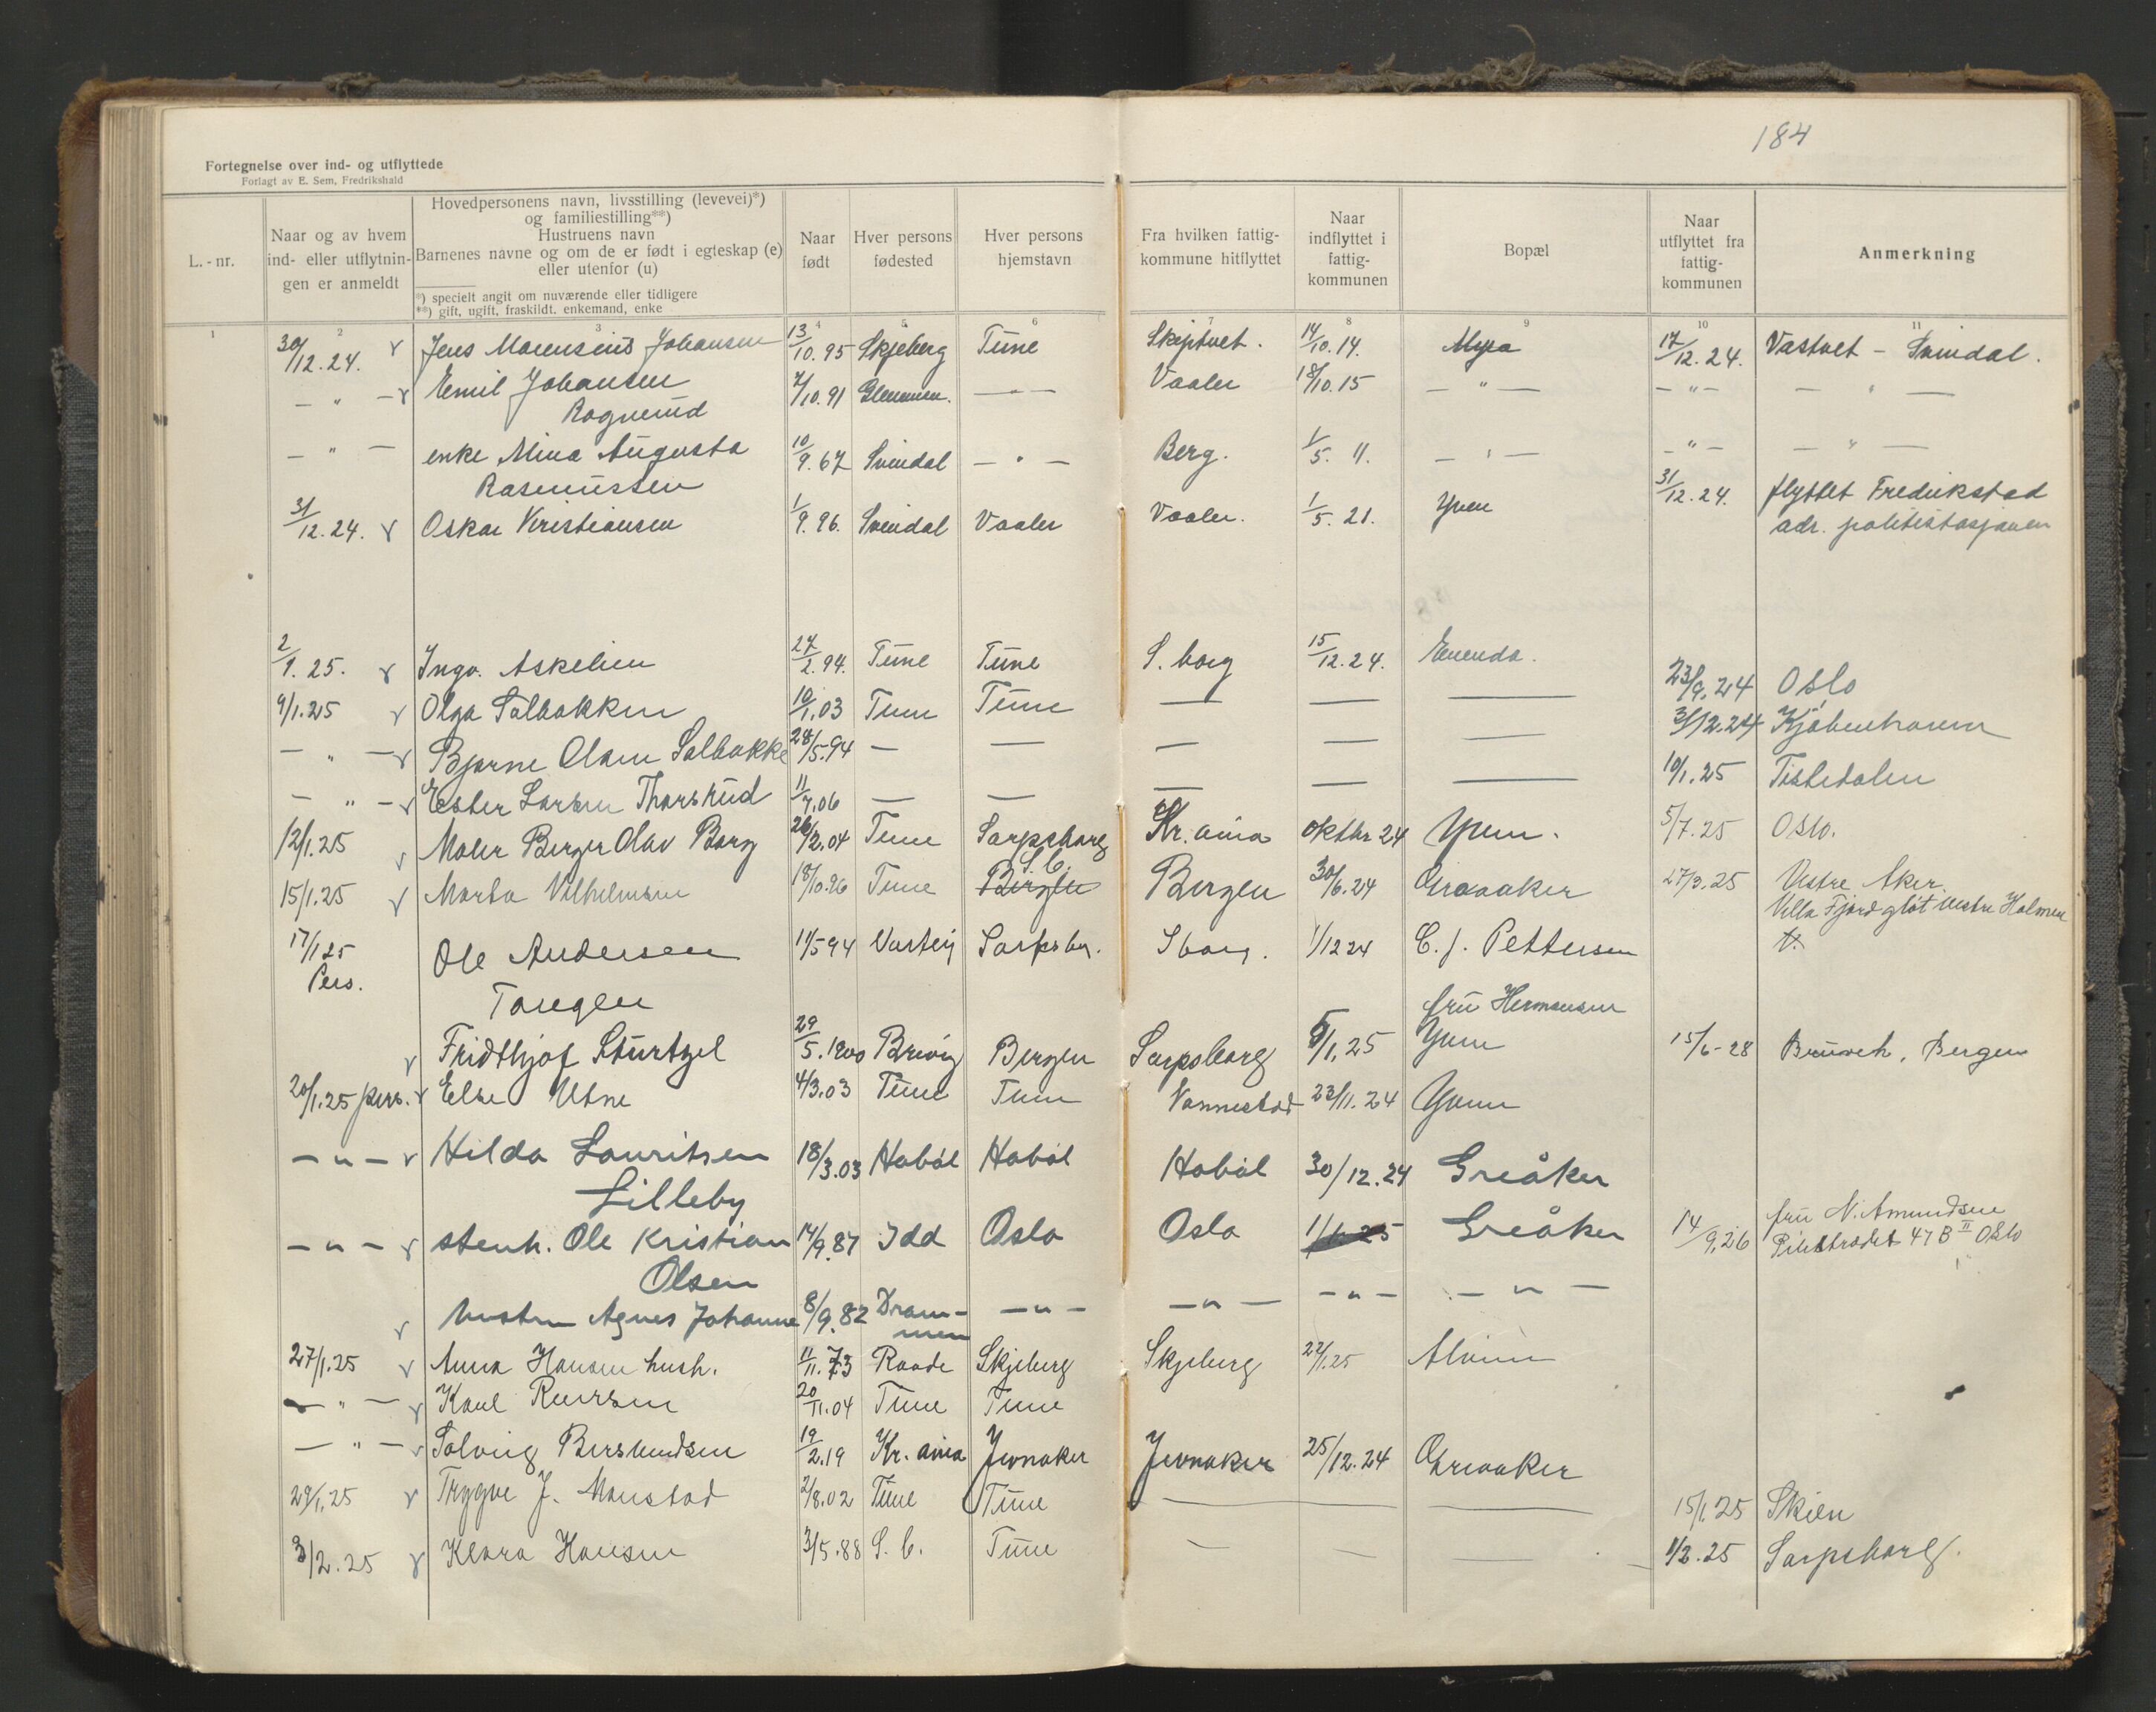 184
Fortegnelse over ind- og utflyttede
Forlagt av E. Sem, Fredrikshald
L.-nr.
Naar og av hvem
ind- eller utflytnin-
gen er anmeldt
Hovedpersonens navn, livsstilling (levevei)*)
og familiestilling**)
Hustruens navn
Barnenes navne og om de er født i egteskap (e)
eller utenfor (u)
*) specielt angit om nuværende eller tidligere
**) gift, ugift, fraskildt. enkemand, enke
Naar
født
Hver persons
fødested
Hver persons
hjemstavn
Fra hvilken fattig-
kommune hitflyttet
Naar
indflyttet i
fattig-
kommunen
Bopæl
Naar
utflyttet fra
fattig-
kommunen
Anmerkning
1 2 3 4 5 6 7 8 9 10 11
30/12.24. Jens Marensius Johansen 13/10.95 Skjeberg Tune Skiptvet. 14/10.14. Myra 17/12.24. Vastvet - Svindal.
— " — Emil Johansen 7/10.91 Glemmen. — " — Vaaler 18/10.15 — " — — " — — " —
Rognerud
— " — enke Mina Augusta 10/9.67 Svindal — " — Berg. 1/5. 11. — " — — " — — " —
Rasmussen
31/12.24. Oskar Kristiansen 1/9.96. Svindal Vaaler Vaaler. 1/5. 21. Yven 31/12.24. flyttet Fredrikstad
adr. politistasjonen
2/1.25. Ingv. Askelien 27/2.94. Tune Tune S.borg 15/12.24. Enenda.
9/1.25 Olga Solbakken 10/1.03 Tune Tune — — — 23/9.24 Oslo
— " — Bjarne Olsen Solbakke 28/5.94 — — — — — 3/12.24 Kjøbenhavn
— " — Ester Larsen Thorsrud 11/7.06 — — — — — 10/1.25 Tistedalen
12/1.25 Maler Birger Olav Borg 26/2.04 Tune Sarpsborg Kr.ania oktbr 24 Yven. 5/7.25 Oslo.
15/1.25 Marta Vilhelmsen 18/10.86 Tune Bergen S.b. Bergen 30/6.24 Greaaker 27/3.25 Vestre Aker.
Villa Fjordgløt vestre Holmen
17/1 25 Ole Andersen 11/5 94 Varteig Sarpsbg. Sborg. 1/12 24 C. J. Pettersen
Pers. Tangen
fru Hermansen
Fridthjof Sturtzel 29/5.1900 Brevig Bergen Sarpsborg 8/1.25 Yven 15/6-28 Bergen
20/1.25 pers. Else Utne 4/3.03 Tune Tune Vannestad 23/11.24 Yven
— " — Hilda Lauritsen 18/3.03 Hobøl Hobøl Hobøl 30/12.24 Greåker
Lilleby
— " — stenh. Ole Kristian 14/9.87 Idd Oslo Oslo 1/1.25 Greåker 14/9.26 fru N. Amundsen
Olsen Pilestrædet 47 B II Oslo
hustru Agnes Johanne 8/9.82 Dram- — " — — " — — " — — " —
men
27/1.25 Anna Hansen hush. 11/11.73 Raade Skjeberg Skjeberg 22/1.25 Alvim
— " — Karl Riersen 20/11.04 Tune Tune
— " — Solveig Berslundsen 19/2.19 Kr.ania Jevnaker Jevnaker 25/12.24 Greaaker
29/1.25 Trygve J. Monstad 2/8.02 Tune Tune — — — 15/1.25 Skien
3/2.25 Klara Hansen 3/5.88 S.b. Tune — — — 1/2.25 Sarpsborg.